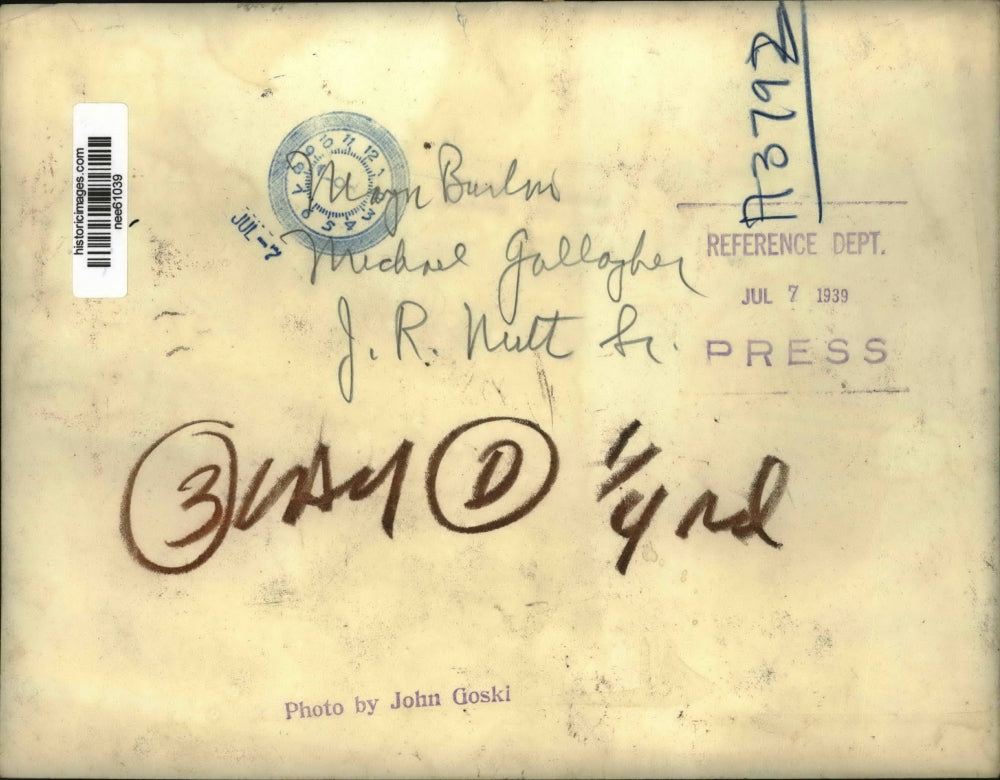 historicimages.com
nee61039
8 9 10 11 12 1
7 6 5 4 3
JUL-7
Mayor Burton
Michael Gallagher
J. R. Nutt Sr.
REFERENCE DEPT.
JUL 7 1939
PRESS
3 D 1/4 rd
Photo by John Goski